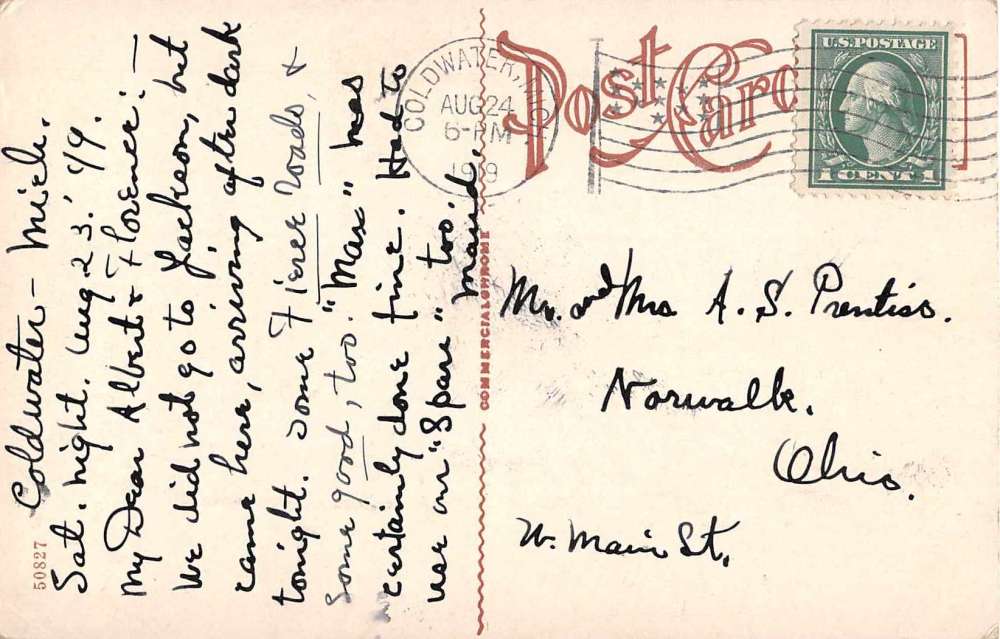 Coldwater - Mich.
Sat. night. Aug 23. '19.
My Dear Albert & Florence: —
We did not go to Jackson, but
came here, arriving after dark
tonight. Some fierce roads, &
some good, too. "Max" has
certainly done fine. Had to
use our "Spare" too.
Maud.
50827
COMMERCIALCHROME
Post Card
COLDWATER, MICH.
AUG 24
6-PM
1919
U.S. POSTAGE
1 CENT 1
Mr. and Mrs A. S. Prentiss.
Norwalk.
Ohio.
W. Main St.